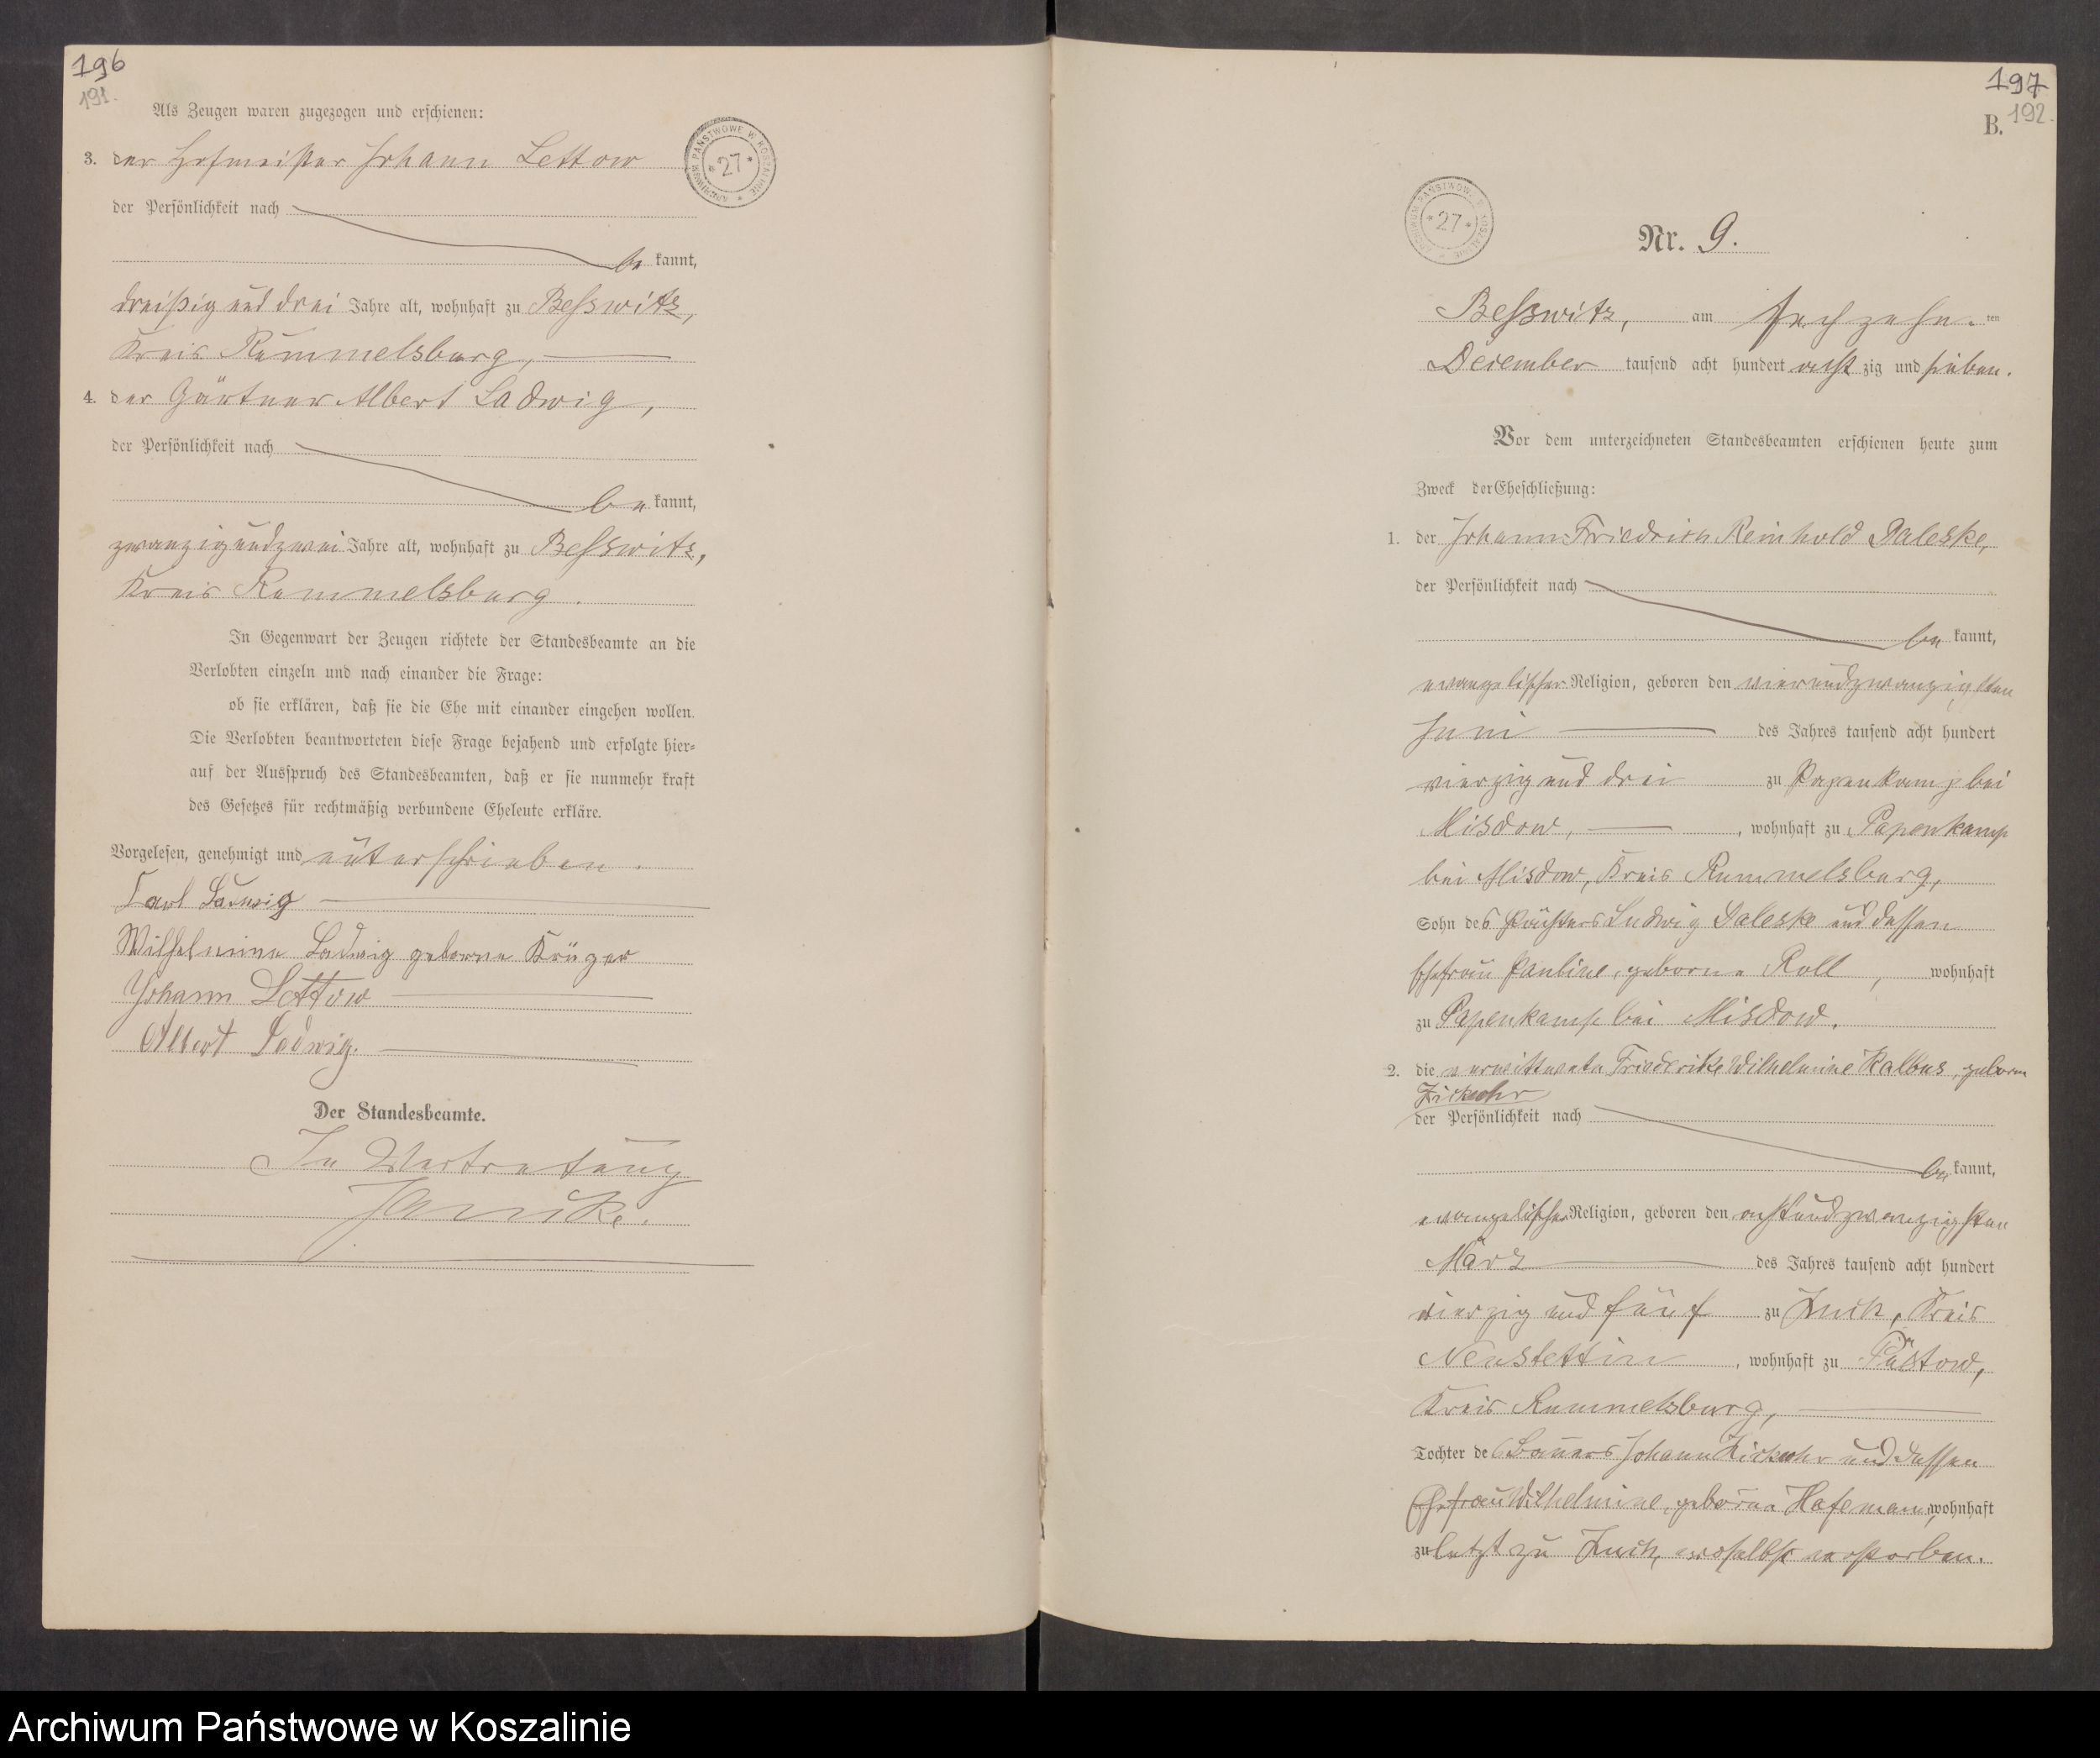 196
191.
Als Zeugen waren zugezogen und erschienen:
3. der Hofmeister Johann Lettow
der Persönlichkeit nach
be kannt,
dreißig und drei Jahre alt, wohnhaft zu Besswitz,
Kreis Rummelsburg,
4. der Gärtner Albert Ladwig,
der Persönlichkeit nach
be kannt,
zwanzig und zwei Jahre alt, wohnhaft zu Besswitz,
Kreis Rummelsburg.
In Gegenwart der Zeugen richtete der Standesbeamte an die
Verlobten einzeln und nach einander die Frage:
ob sie erklären, daß sie die Ehe mit einander eingehen wollen.
Die Verlobten beantworteten diese Frage bejahend und erfolgte hier-
auf der Ausspruch des Standesbeamten, daß er sie nunmehr kraft
des Gesetzes für rechtmäßig verbundene Eheleute erkläre.
Vorgelesen, genehmigt und unterschrieben.
Carl Ladwig
Wilhelmine Ladwig geborne Krüger
Johann Lettow
Albert Ladwig.
Der Standesbeamte.
In Vertretung
ARCHIWUM PAŃSTWOWE W KOSZALINIE * 27 *
197
192.
B.
ARCHIWUM PAŃSTWOWE W KOSZALINIE * 27 *
Nr. 9.
Besswitz, am sechzehn ten
December tausend acht hundert acht zig und sieben.
Vor dem unterzeichneten Standesbeamten erschienen heute zum
Zweck der Eheschließung:
1. der Johann Friedrich Reinhold Daleske,
der Persönlichkeit nach
be kannt,
evangelischer Religion, geboren den vierundzwanzigsten
Juni des Jahres tausend acht hundert
vierzig und drei zu Papenkamp bei
Misdow, wohnhaft zu Papenkamp
bei Misdow, Kreis Rummelsburg,
Sohn des Ludwig Daleske und dessen
Ehefrau Pauline, geborne Roll, wohnhaft
zu Papenkamp bei Misdow.
2. die verwittwete Friederike Wilhelmine Kalbus, geborne
der Persönlichkeit nach
be kannt,
evangelischer Religion, geboren den achtundzwanzigsten
März des Jahres tausend acht hundert
vierzig und fünf zu Kreis
Neustettin, wohnhaft zu
Kreis Rummelsburg,
Tochter des Bauers Johann und dessen
Ehefrau Wilhelmine, geborne Hafemann, wohnhaft
zuletzt zu woselbst verstorben.
Archiwum Państwowe w Koszalinie